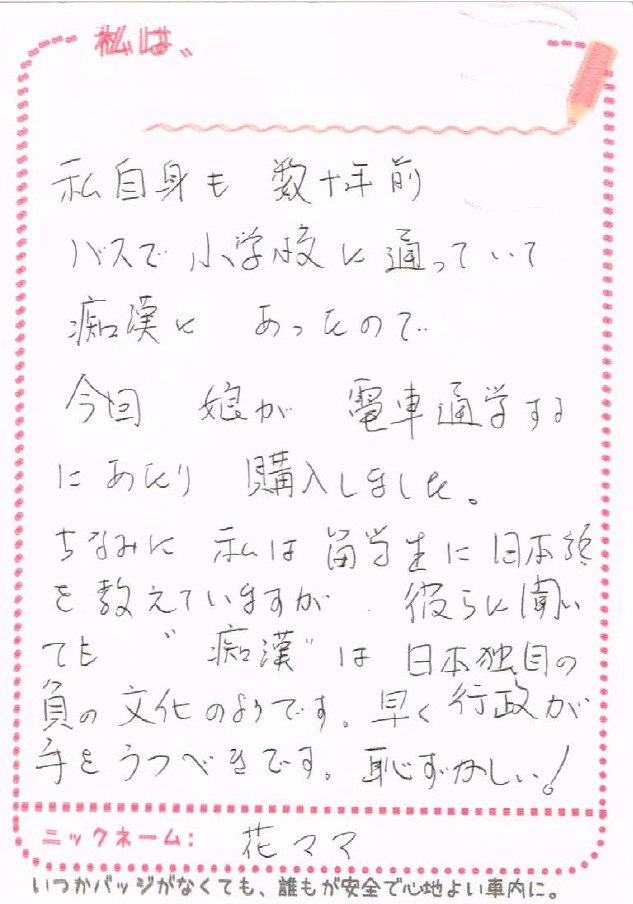 私は、
私自身も 数十年前
バスで 小学校に 通っていて
痴漢に あったので
今回 娘が 電車通学する
にあたり 購入しました。
ちなみに 私は 留学生に 日本語
を 教えていますが 彼らに聞い
ても "痴漢"は 日本独自の
負の 文化のようです。早く 行政が
手をうつべきです。恥ずかしい!
ニックネーム: 花ママ
いつかバッジがなくても、誰もが安全で心地よい車内に。